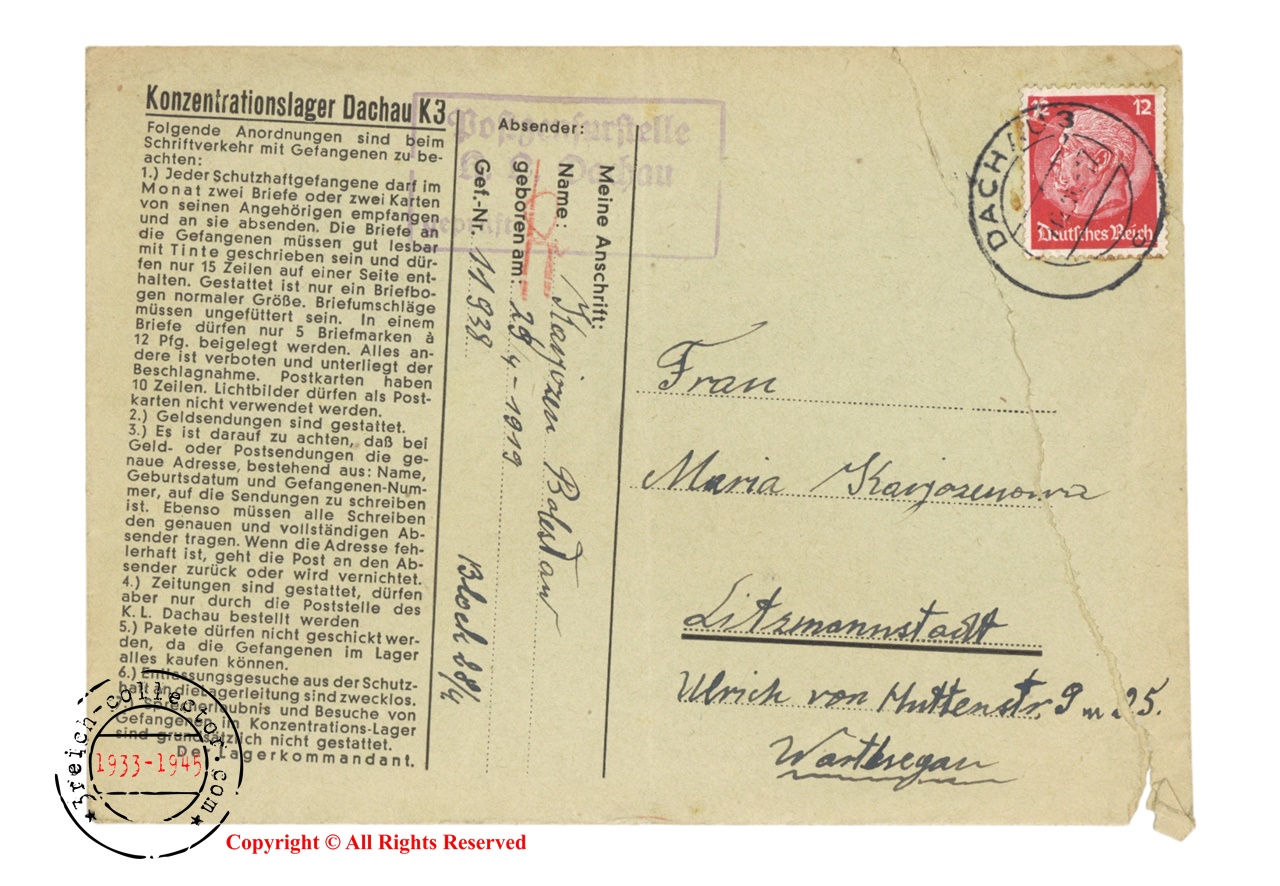 Konzentrationslager Dachau K3
Folgende Anordnungen sind beim
Schriftverkehr mit Gefangenen zu be-
achten:
1.) Jeder Schutzhaftgefangene darf im
Monat zwei Briefe oder zwei Karten
von seinen Angehörigen empfangen
und an sie absenden. Die Briefe an
die Gefangenen müssen gut lesbar
mit Tinte geschrieben sein und dür-
fen nur 15 Zeilen auf einer Seite ent-
halten. Gestattet ist nur ein Briefbo-
gen normaler Größe. Briefumschläge
müssen ungefüttert sein. In einem
Briefe dürfen nur 5 Briefmarken à
12 Pfg. beigelegt werden. Alles an-
dere ist verboten und unterliegt der
Beschlagnahme. Postkarten haben
10 Zeilen. Lichtbilder dürfen als Post-
karten nicht verwendet werden.
2.) Geldsendungen sind gestattet.
3.) Es ist darauf zu achten, daß bei
Geld- oder Postsendungen die ge-
naue Adresse, bestehend aus: Name,
Geburtsdatum und Gefangenen-Num-
mer, auf die Sendungen zu schreiben
ist. Ebenso müssen alle Schreiben
den genauen und vollständigen Ab-
sender tragen. Wenn die Adresse feh-
lerhaft ist, geht die Post an den Ab-
sender zurück oder wird vernichtet.
4.) Zeitungen sind gestattet, dürfen
aber nur durch die Poststelle des
K. L. Dachau bestellt werden
5.) Pakete dürfen nicht geschickt wer-
den, da die Gefangenen im Lager
alles kaufen können.
6.) Entlassungsgesuche aus der Schutz-
haft an die Lagerleitung sind zwecklos.
Sprecherlaubnis und Besuche von
Gefangenen in Konzentrations-Lager
sind grundsätzlich nicht gestattet.
Der Lagerkommandant.
Absender:
Meine Anschrift:
Name: Karjozen Bolesław
geboren am: 28 4 - 1919
Gef.-Nr. 11938 Block 28/4
Postzensurstelle
K. L. Dachau
geprüft
12
Deutsches Reich
DACHAU 3
Frau
Maria Karjozenowa
Litzmannstadt
Ulrich von Huttenstr. 9 m 25.
Warthegau
3reich-collector.com
1933-1945
Copyright © All Rights Reserved